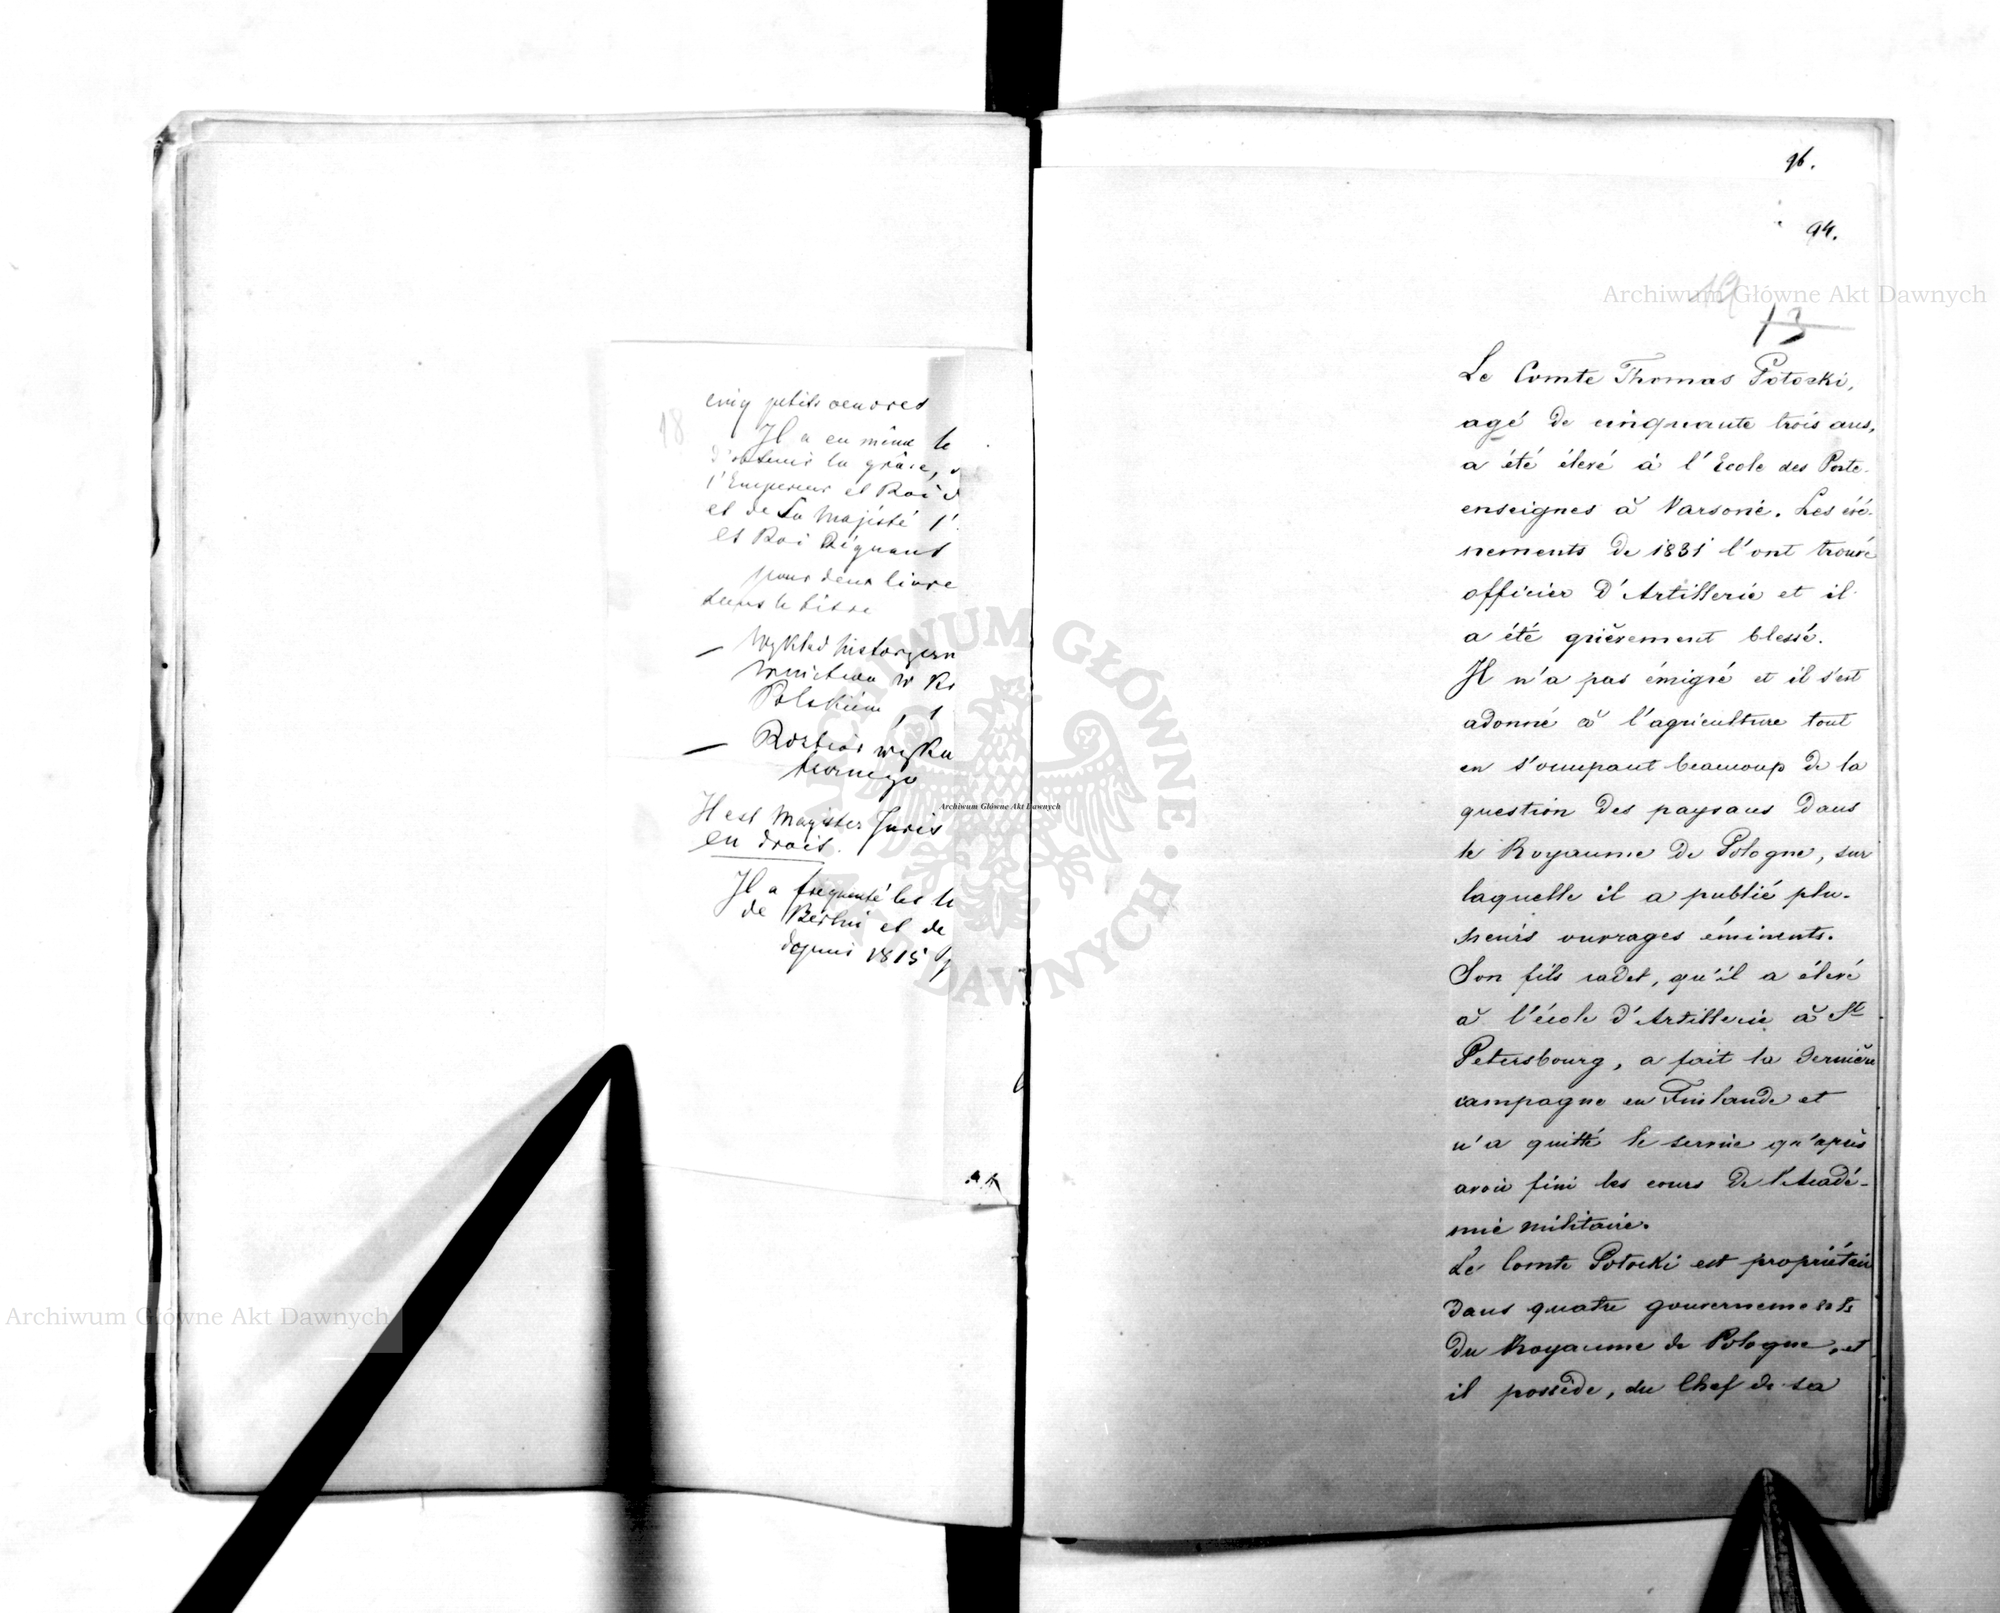 18
cinq petits oeuvres
Il a en même te
d'obtenir la grâce, d
l'Empereur et Roi d
et de Sa Majésté l'
et Roi Régnant
pour deux livre
sous le titre
— Wykład historyczn
w Kr
Polskiém, 1
— Rozbiór wyku
Il est Magister Juris
en droit.
Il a frequenté les
de Berlin et de
depuis 1815
96.
94.
19
13
Le Comte Thomas Potocki,
agé de cinquante trois ans,
a été élevé à l'Ecole des Porte-
enseignes à Varsovie. Les évé-
nements de 1831 l'ont trouvé
officier d'Artillerie et il
a été grièvement blessé.
Il n'a pas émigré et il s'est
adonné à l'agriculture tout
en s'occupant beaucoup de la
question des paysans dans
le Royaume de Pologne, sur
laquelle il a publié plu-
sieurs ouvrages éminents.
Son fils cadet, qu'il a élevé
à l'école d'Artillerie à St
Petersbourg, a fait la dernière
campagne en Finlande et
n'a quitté le service qu'après
avoir fini les cours de l'Acadé-
mie militaire.
Le Comte Potocki est propriétaire
dans quatre gouvernements
du Royaume de Pologne, et
il possède, du Chef de sa
Archiwum Główne Akt Dawnych
Archiwum Główne Akt Dawnych
Archiwum Główne Akt Dawnych
ARCHIWUM GŁÓWNE AKT DAWNYCH